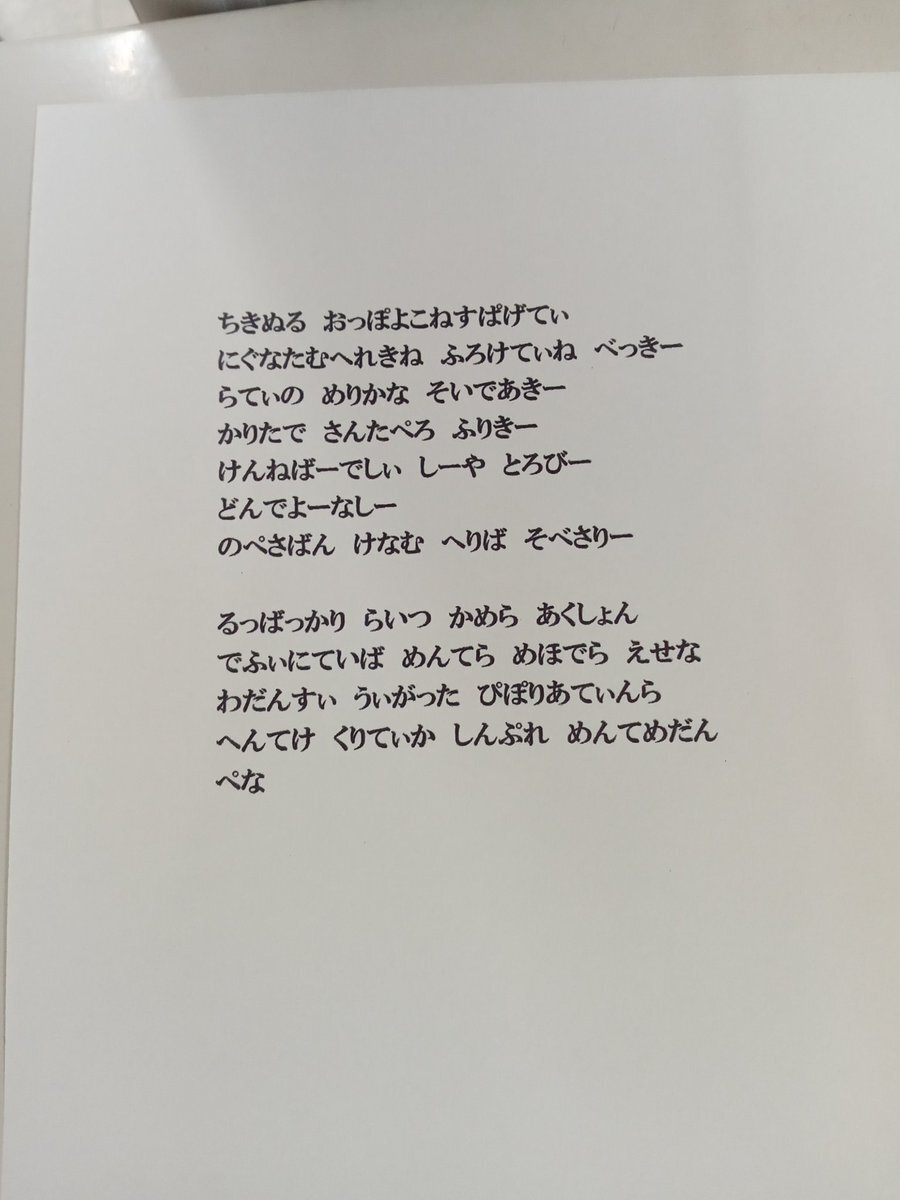 ちきぬる おっぽよこねすぱげてぃ
にぐなたむへれきね ふろけてぃね べっきー
らてぃの めりかな そいであきー
かりたで さんたぺろ ふりきー
けんねばーでしぃ しーや とろびー
どんでよーなしー
のぺさばん けなむ へりば そべさりー
るっばっかり らいつ かめら あくしょん
でふぃにていば めんてら めほでら えせな
わだんすぃ うぃがった ぴぽりあてぃんら
へんてけ くりてぃか しんぷれ めんてめだん
ぺな